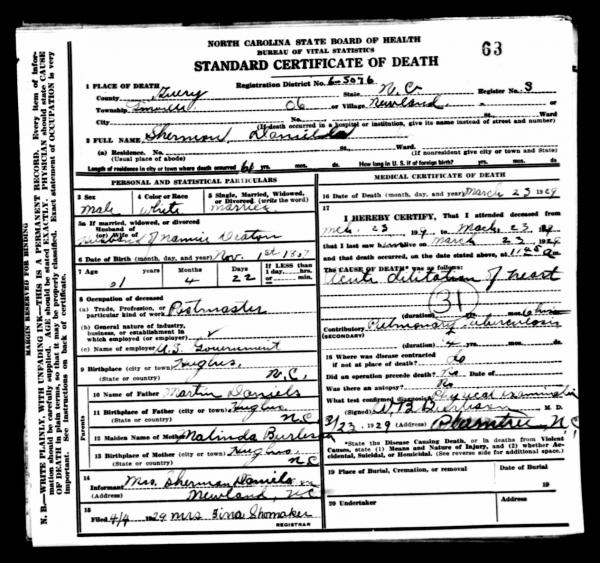 NORTH CAROLINA STATE BOARD OF HEALTH
BUREAU OF VITAL STATISTICS
STANDARD CERTIFICATE OF DEATH
63
1 PLACE OF DEATH
Registration District No. 6-5076
County Avery
State N. C.
Register No. 3
Township Linville 06 or Village Newland
City No. St., Ward
(If death occurred in a hospital or institution, give its name instead of street and number)
2 FULL NAME Sherman Daniels
(a) Residence. No. St., Ward
(Usual place of abode)
(If nonresident give city or town and State)
Length of residence in city or town where death occurred yrs. mos. ds. How long in U. S. if of foreign birth? yrs. mos. ds.
PERSONAL AND STATISTICAL PARTICULARS
3 Sex
Male
4 Color or Race
White
5 Single, Married, Widowed,
or Divorced (write the word)
Married
5a If married, widowed, or divorced
Husband of
(or) Wife of Husband of Nannie Deaton
6 Date of Birth (month, day, and year) Nov. 1st 1867
7 Age
61
Months
4
Days
22
IF LESS than
1 day, hrs.
or min.
8 Occupation of deceased
(a) Trade, Profession, or
particular kind of work Postmaster
(b) General nature of industry,
business, or establishment in
which employed (or employer)
(c) Name of employer U.S. Government
9 Birthplace (city or town) Hughes,
(State or country) N.C.
Parents
10 Name of Father Martin Daniels
11 Birthplace of Father (city or town) Hughes
(State or country) N.C
12 Maiden Name of Mother Malinda Burleson
13 Birthplace of Mother (city or town) Hughes,
(State or country) N C
14
Informant Mrs. Sherman Daniels
(Address) Newland, N.C
15
Filed 4/4 1929 Mrs Tina Shomaker
REGISTRAR
MEDICAL CERTIFICATE OF DEATH
16 Date of Death (month, day, and year) March 23 1929
17
I HEREBY CERTIFY, That I attended deceased from
Mch. 23 19 , to Mach. 23, 19
that I last saw him alive on March 23 1929
and that death occurred, on the date stated above, at 11:45 a m.
The CAUSE OF DEATH* was as follows:
Acute dilitation of heart
31
(duration)
Contributory Pulmonary tuberculosis
(SECONDARY)
(duration) 4
18 Where was disease contracted
if not at place of death?
Did an operation precede death? No
Was there an autopsy? No
What test confirmed diagnosis? Physical examination
(Signed) W B Burleson M. D.
3/23 1929 (Address) Plumtree, N.C.
*State the Disease Causing Death, or in deaths from Violent
Causes, state (1) Means and Nature of Injury, and (2) whether Ac-
cidental, Suicidal, or Homicidal. (See reverse side for additional space.)
19 Place of Burial, Cremation, or removal
Date of Burial
19
20 Undertaker
Address
MARGIN RESERVED FOR BINDING
N. B.—WRITE PLAINLY, WITH UNFADING INK—THIS IS A PERMANENT RECORD. Every item of infor-
mation should be carefully supplied. AGE should be stated EXACTLY. PHYSICIAN should state CAUSE
OF DEATH in plain terms, so that it may be properly classified. Exact statement of OCCUPATION is very
important. See instructions on back of certificate.